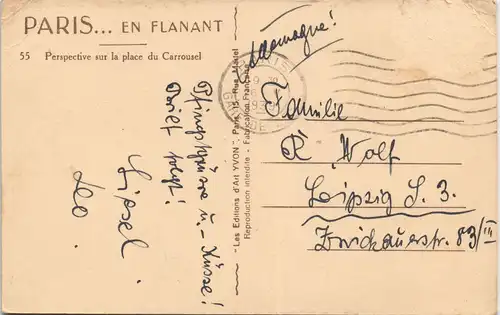 PARIS... EN FLANANT
55 Perspective sur la place du Carrousel
Pfingstgrüsse u. - Küsse!
Brief folgt!
Liesel
Leo.
- Les Editions d'Art YVON -, Paris, 15, Rue Martel
Reproduction interdite - Fabrication Française
PARIS
Allemagne!
Familie
R. Wolf
Leipzig S. 3.
Zwickauerstr. 83/III